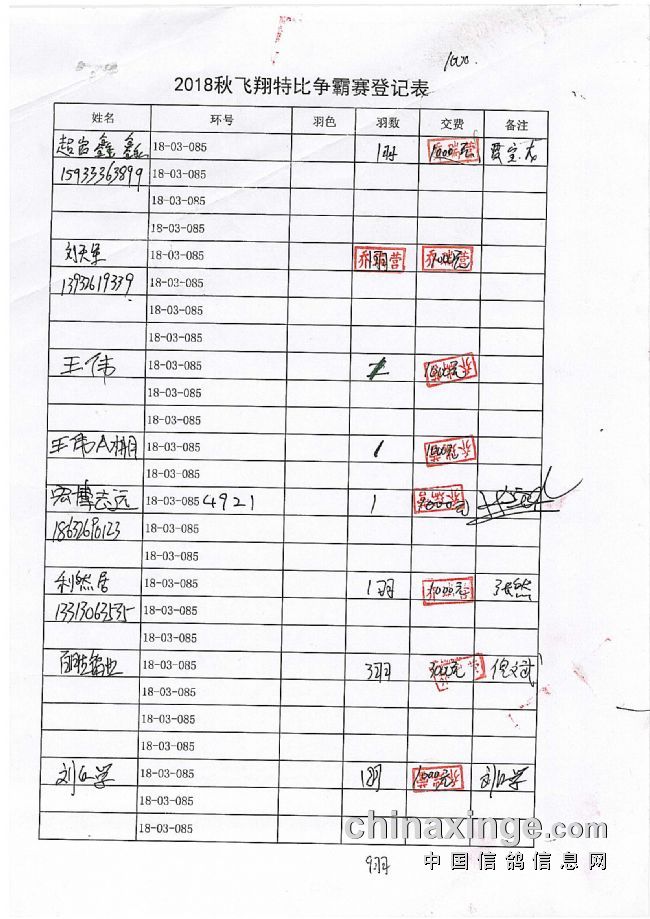 1000.
2018秋飞翔特比争霸赛登记表
姓名 环号 羽色 羽数 交费 备注
超岩鑫鑫 18-03-085 1羽 1000元
15933363899 18-03-085
18-03-085
18-03-085
刘天军 18-03-085 1羽 1000元
13932619339 18-03-085
18-03-085
18-03-085
王伟 18-03-085 1 1000元
18-03-085
18-03-085
王伟A棚 18-03-085 1 1000元
18-03-085
宏博志远 18-03-085 4921 1 1000元
18-03-085
18-03-085
利然居 18-03-085 1羽 1000元 张然
13313063535 18-03-085
18-03-085
18-03-085 3羽 3000元
18-03-085
18-03-085
18-03-085
18-03-085 1羽 1000元
18-03-085
18-03-085
9羽
chinaxinge.com
中国信鸽信息网